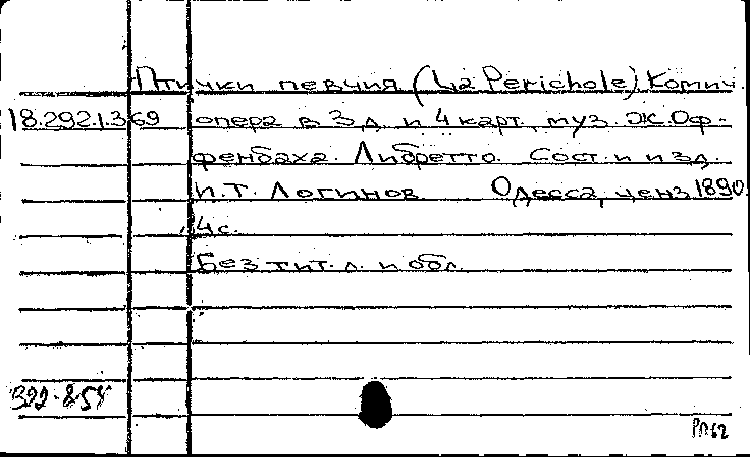 Птички певчия (La Perichole) Комич.
18.292.1.369 опера в 3 д. и 4 карт., муз. Ж. Оф-
фенбаха. Либретто. Сост. и изд.
И.Т. Логинов. Одесса, ценз. 1890.
4 с.
Без тит. л. и обл.
В99-858
РП62